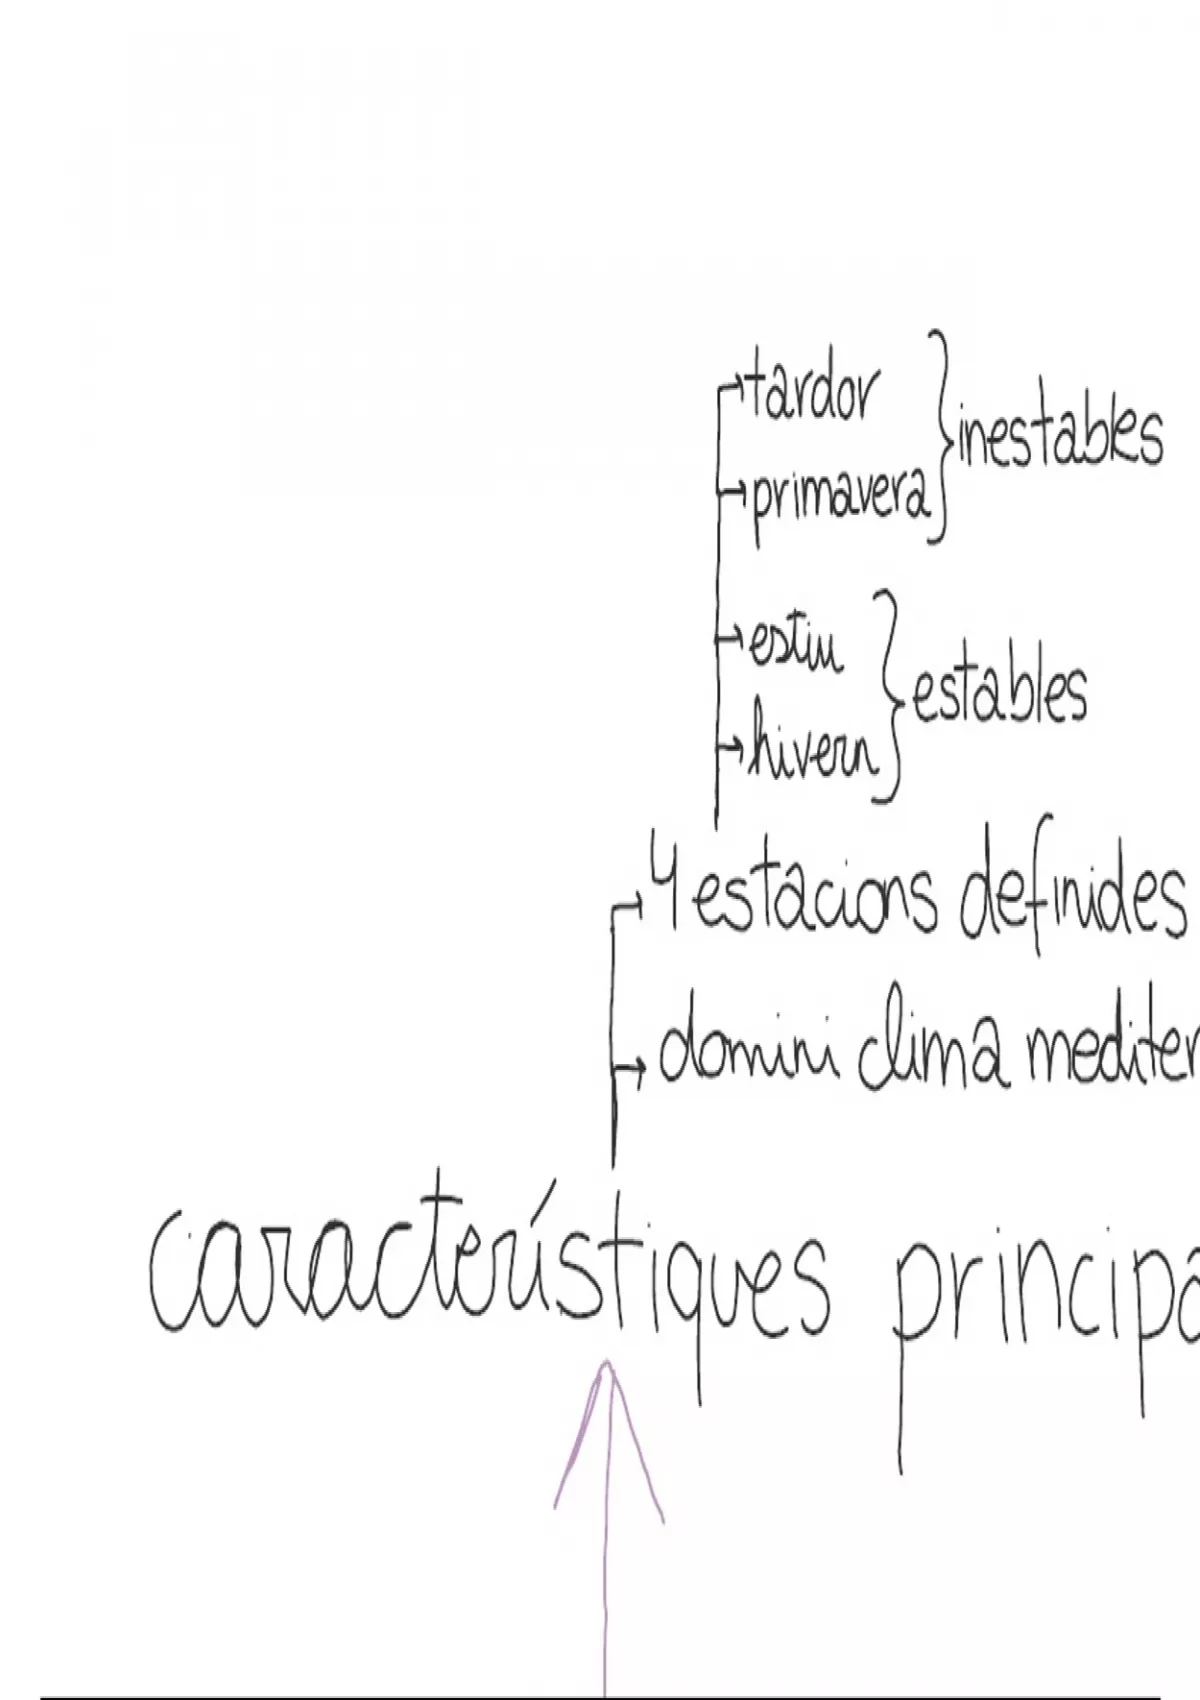 tardor
primavera
inestables
estiu
hivern
estables
4 estacions definides
domini clima mediter
característiques principa